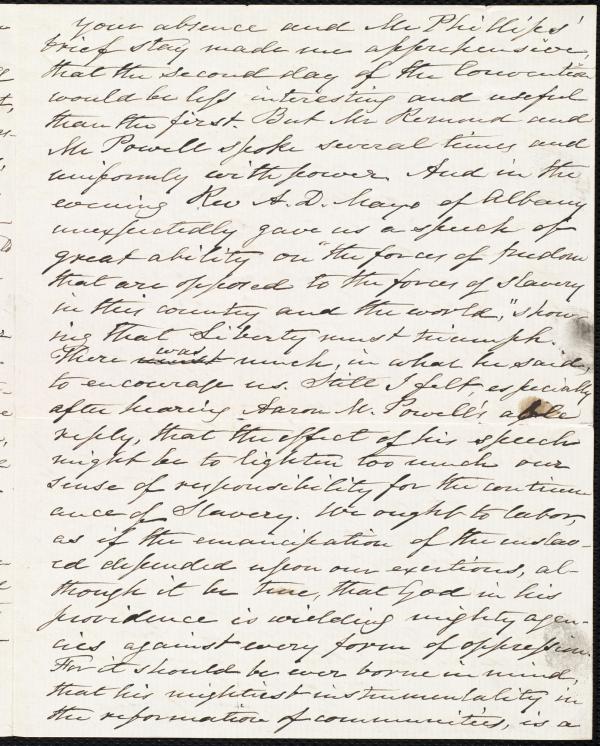 Your absence and Mr Phillips'
brief stay made me apprehensive,
that the second day of the Convention
would be less interesting and useful
than the first. But Mr Remond and
Mr Powell spoke several times and
uniformly with power. And in the
evening Rev A. D. Mayo of Albany
unexpectedly gave us a speech of
great ability on "the forces of freedom
that are opposed to the forces of Slavery
in this country and the world," show-
ing that Liberty must triumph.
There was much, in what he said,
to encourage us. Still I felt, especially
after hearing Aaron M. Powell's able
reply, that the effect of his speech
might be to lighten too much our
sense of responsibility for the continu-
ance of Slavery. We ought to labor,
as if the emancipation of the enslav-
ed depended upon our exertions, al-
though it be true, that God in his
providence is wielding mighty agen-
cies against every form of oppression.
For it should be ever borne in mind,
that his mightiest instrumentality in
the reformation of communities, is a